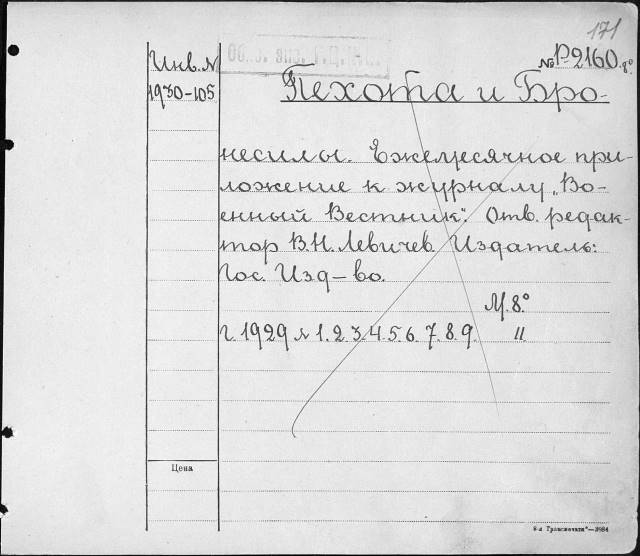 171
№ Р-2160.8°
Инв. №
1930-105
Пехота и Бро-
несилы. Ежемесячное при-
ложение к журналу „Во-
енный Вестник". Отв. редак-
тор В.Н. Левичев. Издатель:
Гос. Изд-во.
М. 8.°
г. 1929 № 1. 2. 3. 4. 5. 6. 7. 8. 9. "
Цена
8-я Транспечати"—3984